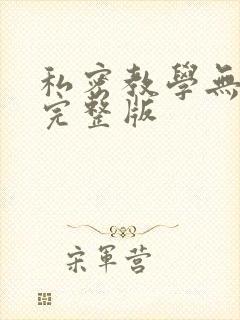 私密教學無
完整版
宋軍营